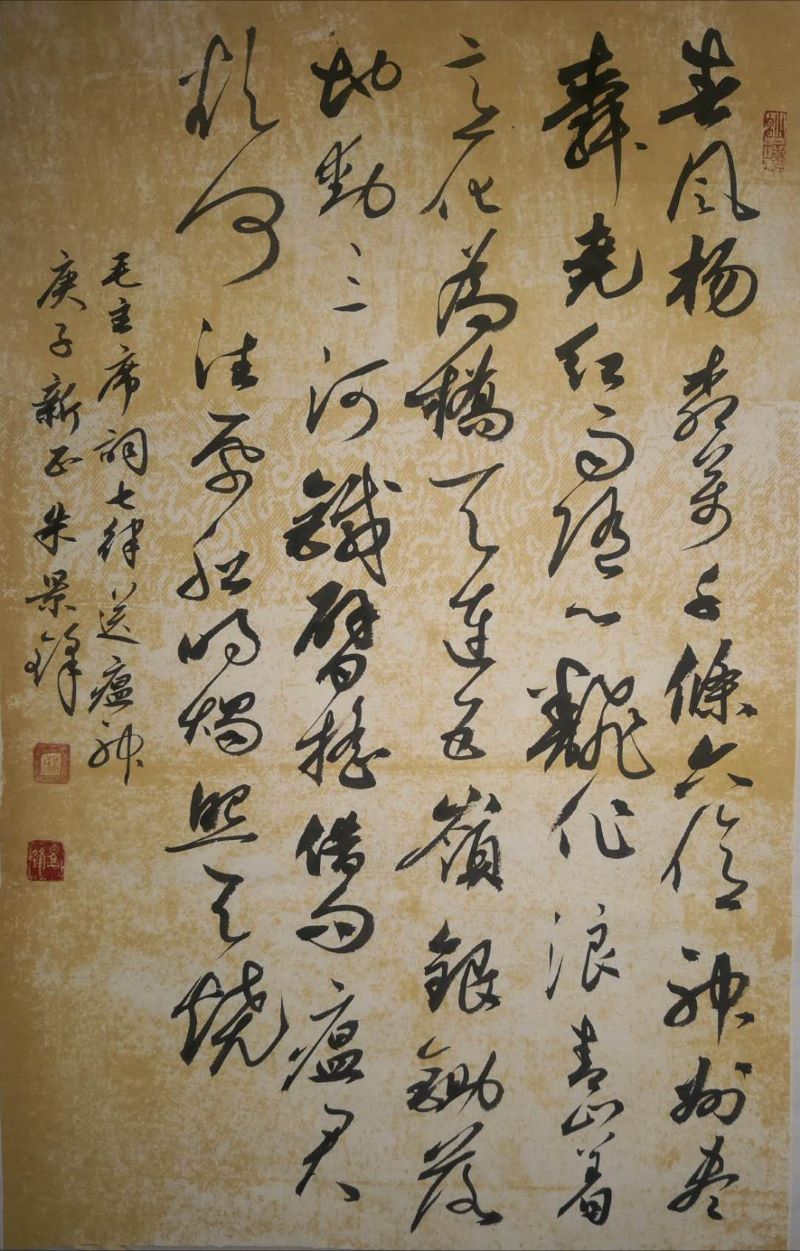 春风杨柳萬千條六億神州尽
舜尧红雨随心翻作浪青山着
意化為橋天連五嶺銀鋤落
地動三河鐵臂搖借问瘟君
欲何往纸船明燭照天燒
毛主席詞七律送瘟神
庚子新正朱景鋒